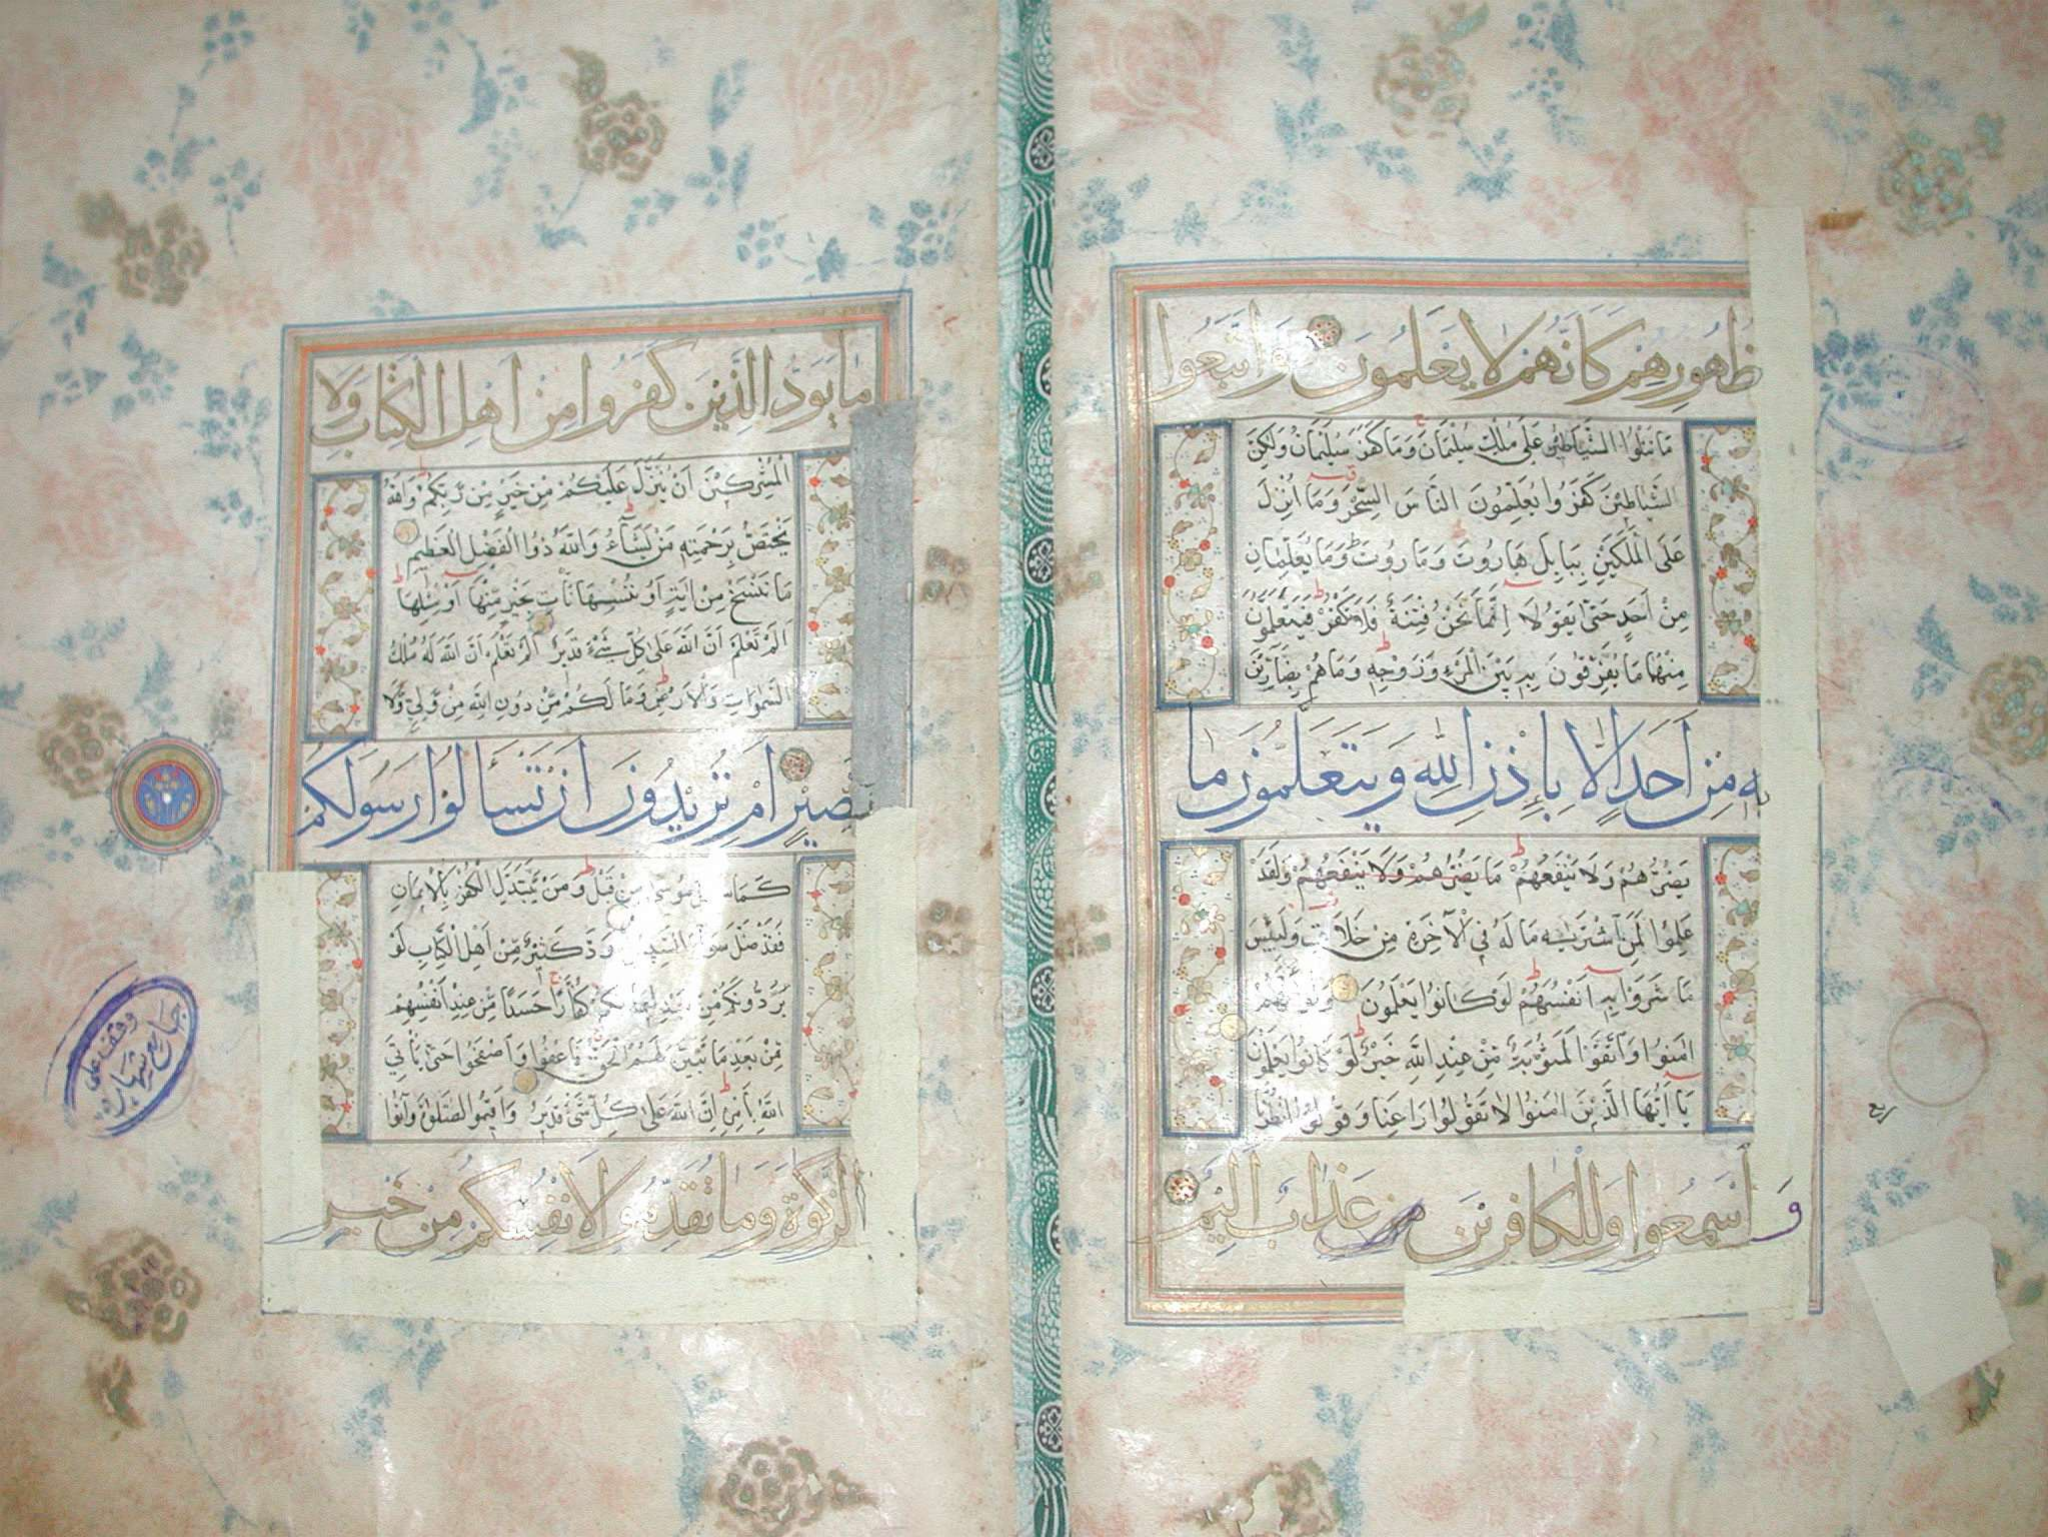 ظهورهم كانهم لا يعلمون واتبعوا
ما تتلوا الشياطين على ملك سليمان وما كفر سليمان ولكن
الشياطين كفروا يعلمون الناس السحر وما انزل
على الملكين ببابل هاروت وماروت وما يعلمان
من احد حتى يقولا انما نحن فتنة فلا تكفر فيتعلمون
منهما ما يفرقون به بين المرء وزوجه وما هم بضارين
به من احد الا باذن الله ويتعلمون ما
يضرهم ولا ينفعهم ما يضرهم ولا ينفعهم ولقد
علموا لمن اشتريه ما له في الآخرة من خلاق ولبئس
ما شروا به انفسهم لو كانوا يعلمون ولو انهم
امنوا واتقوا لمثوبة من عند الله خير لو كانوا يعلمون
يا ايها الذين امنوا لا تقولوا راعنا وقولوا انظرنا
واسمعوا وللكافرين عذاب اليم
ربع
ما يود الذين كفروا من اهل الكتاب ولا
المشركين ان ينزل عليكم من خير من ربكم والله
يختص برحمته من يشاء والله ذوا الفضل العظيم
ما ننسخ من اية او ننسها نات بخير منها او مثلها
الم تعلم ان الله على كل شيء قدير الم تعلم ان الله له ملك
السموات والارض وما لكم من دون الله من ولي ولا
نصير ام تريدون ان تسألوا رسولكم
كما سئل موسى من قبل ومن يتبدل الكفر بالايمان
فقد ضل سواء السبيل ود كثير من اهل الكتاب لو
يردونكم من بعد ايمانكم كفارا حسدا من عند انفسهم
من بعد ما تبين لهم الحق فاعفوا واصفحوا حتى يأتي
الله بامره ان الله على كل شيء قدير واقيموا الصلوة وآتوا
الزكوة وما تقدموا لانفسكم من خير
وقف على
جامع شهاره